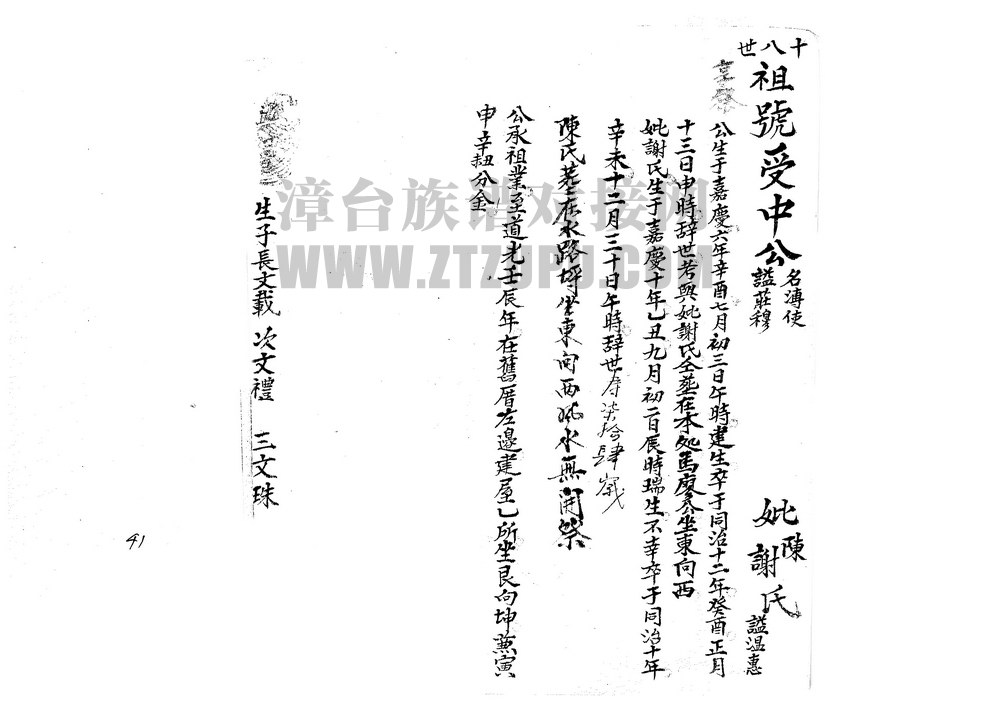 十八世
祖號受中公 名溥使 諡莊穆
妣陳謝氏 諡溫惠
公生于嘉慶六年辛酉七月初三日午時建生卒于同治十二年癸酉正月
十三日申時辞世考與妣謝氏仝葬在本处馬廖夯坐東向西
妣謝氏生于嘉慶十年乙丑九月初二日辰時瑞生不幸卒于同治十年
辛未十二月三十日午時辞世寿柒拾肆歲
陳氏塟在水路坪坐東向西風水無開祭
公承祖業至道光壬辰年在舊厝左邊建屋乙所坐艮向坤兼寅
申辛丑分金
生子長文載 次文禮 三文珠
41
漳台族谱对接网
WWW.ZTZUPU.COM